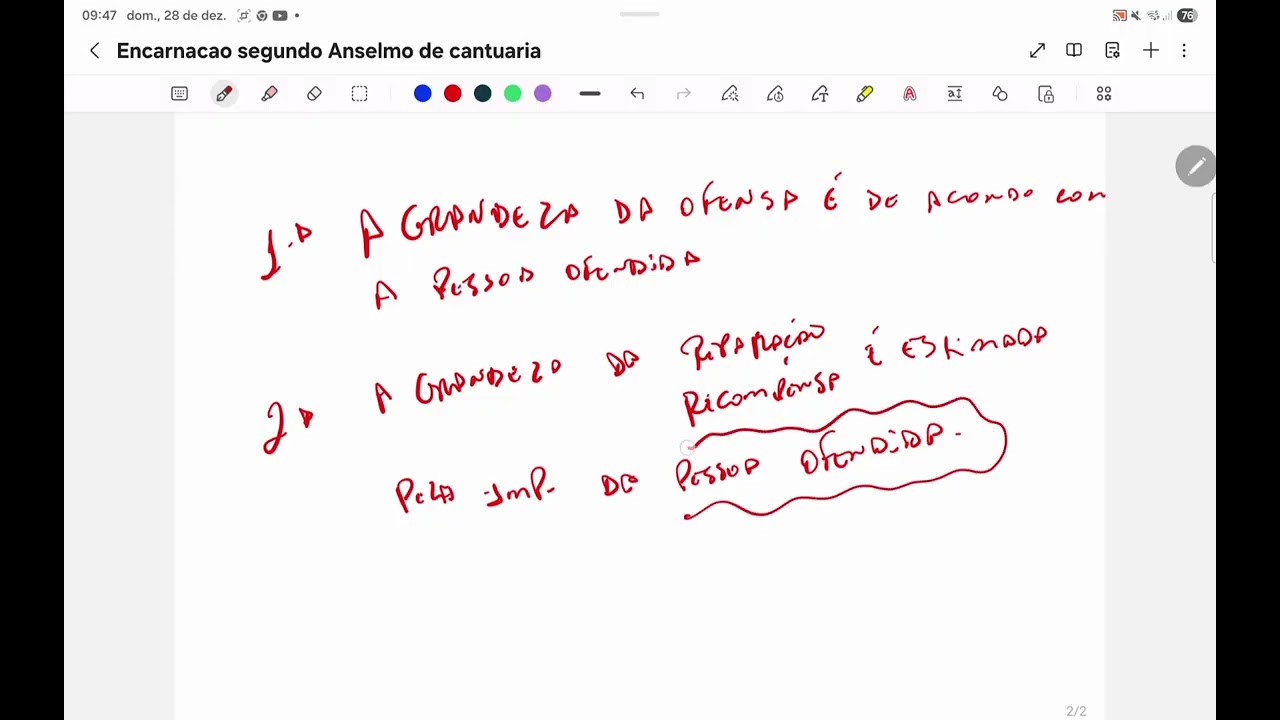 09:47 dom., 28 de dez.
76
Encarnacao segundo Anselmo de cantuaria
1.A A GRANDEZA DA OFENSA É DE ACORDO COM
A PESSOA OFENDIDA
2A A GRANDEZA DA REPARAÇÃO É ESTIMADA
RECOMPENSA
PELA IMP. DA PESSOA OFENDIDA.
2/2